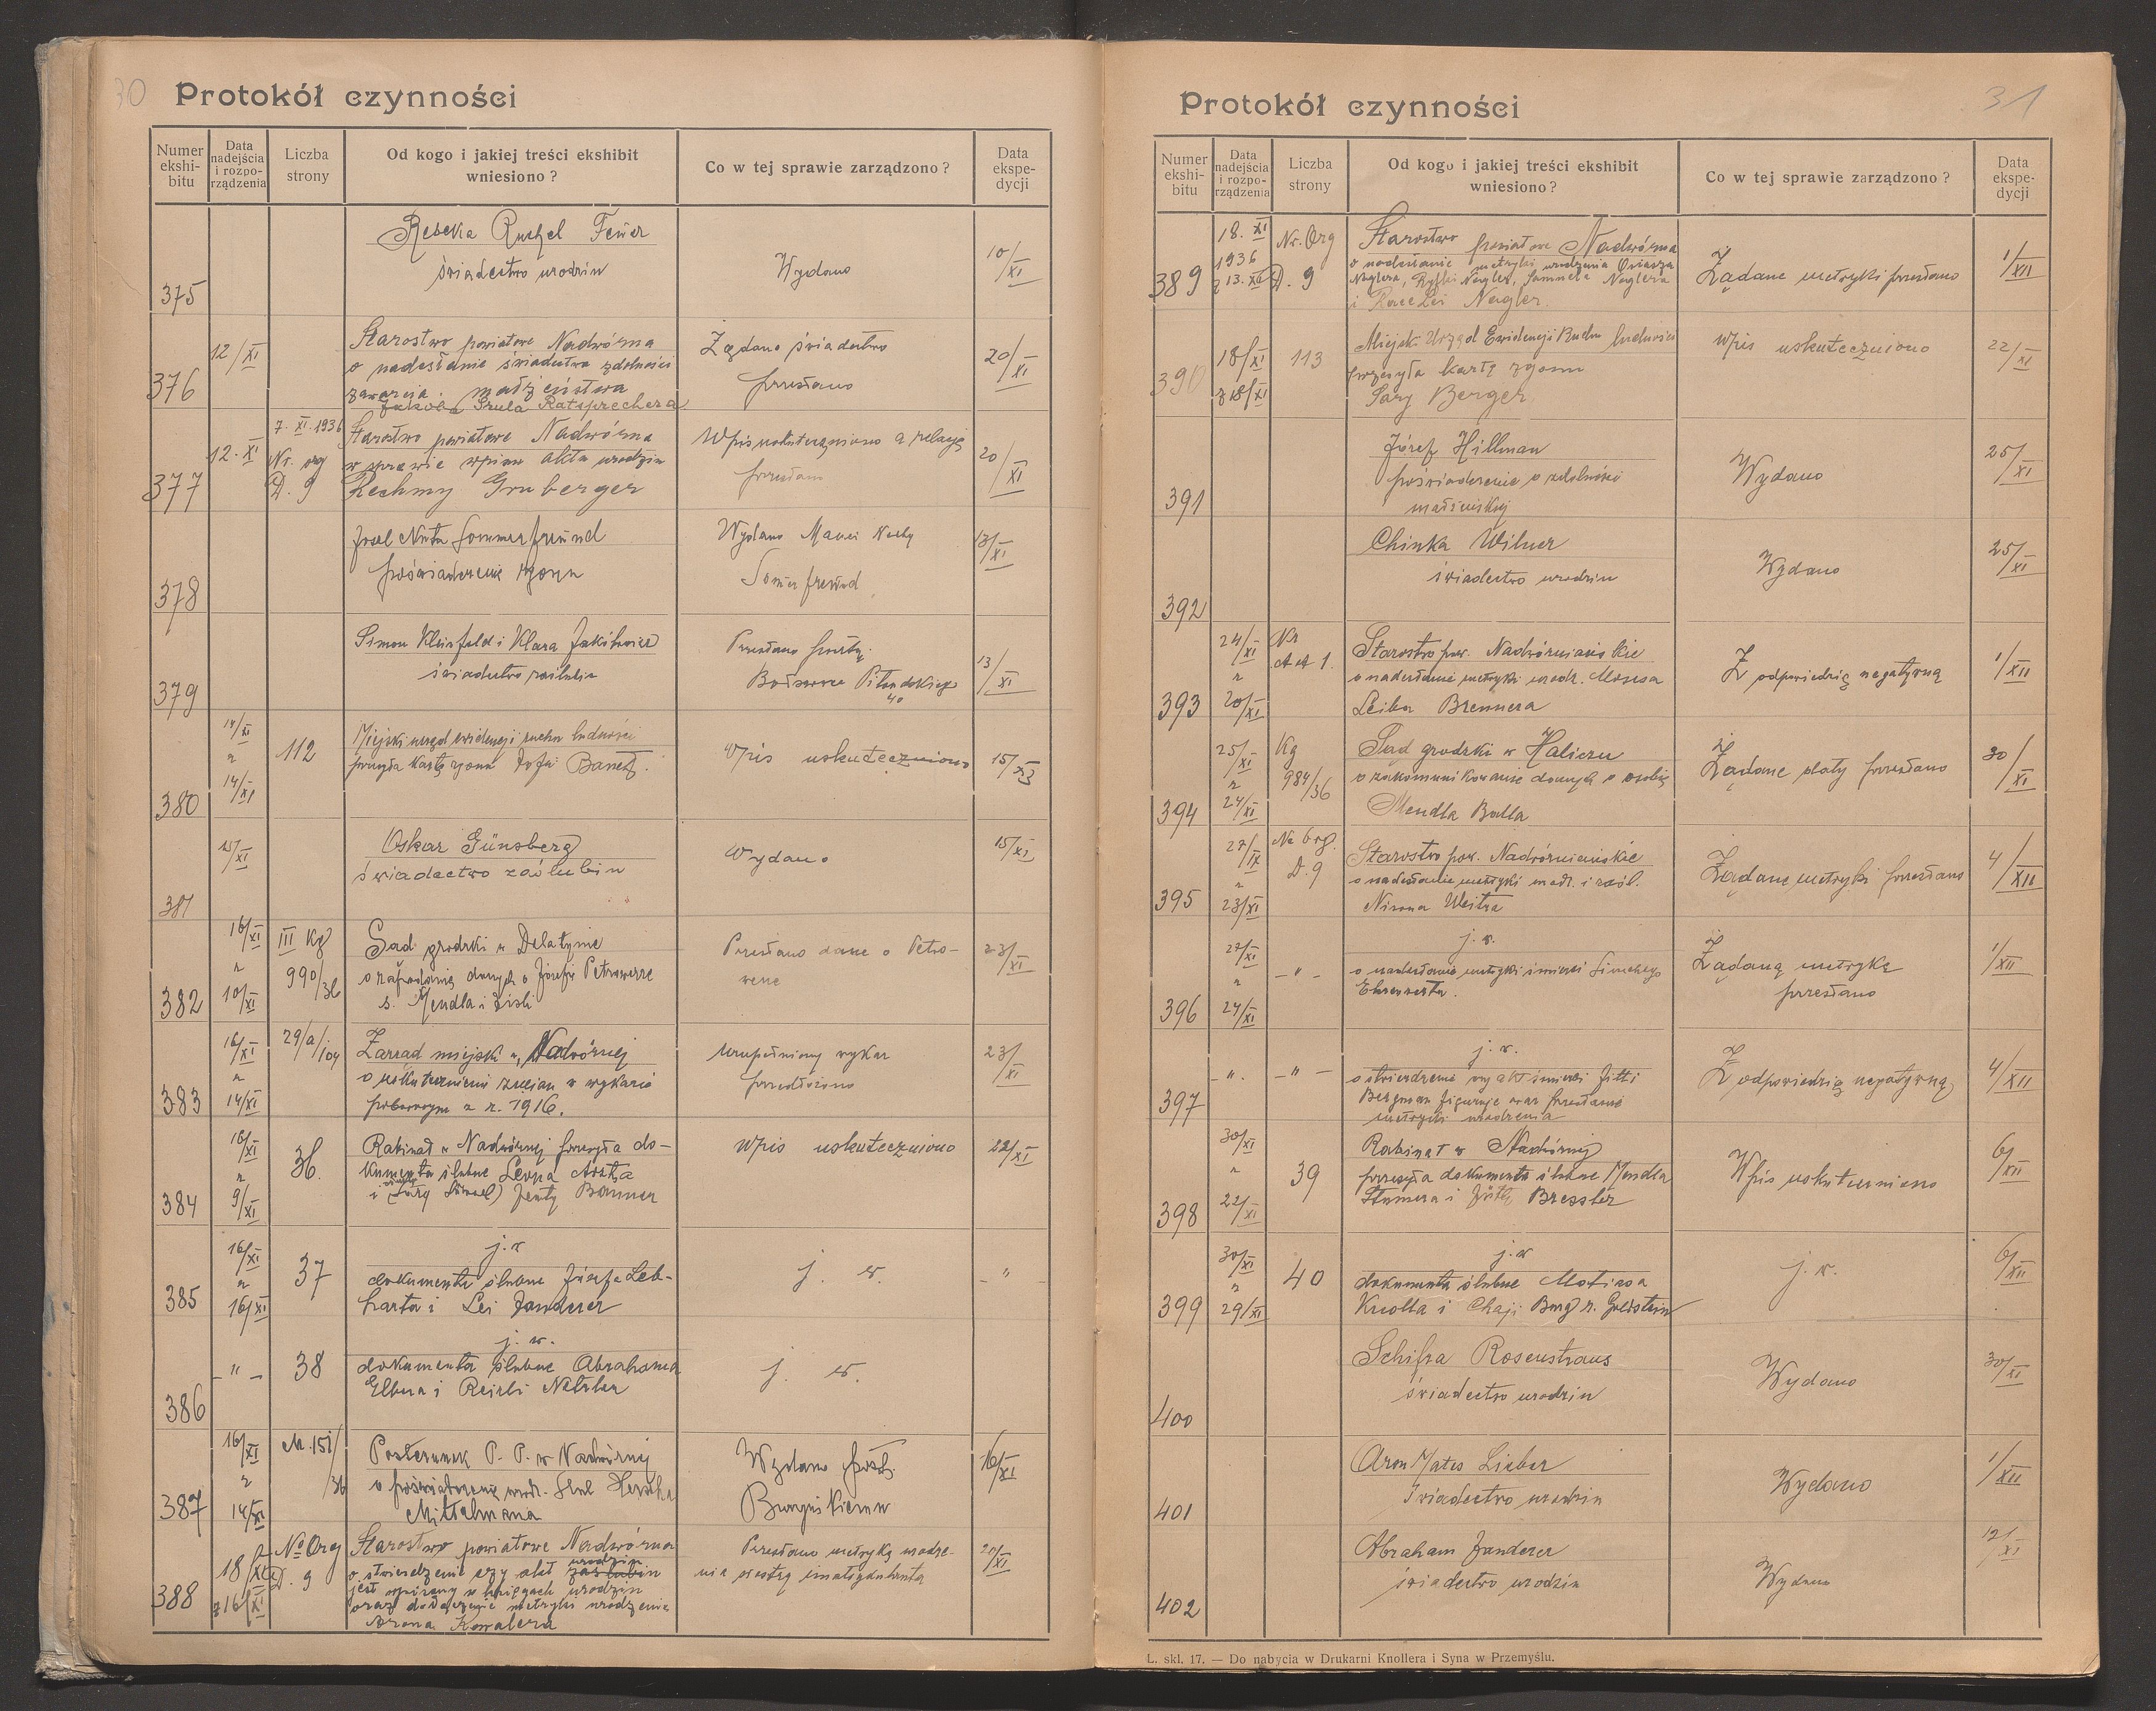 30
Protokół czynności
Numer ekshi-bitu
Data nadejścia i rozpo-rządzenia
Liczba strony
Od kogo i jakiej treści ekshibit wniesiono?
Co w tej sprawie zarządzono?
Data ekspe-dycji
Rebeka Ruchel Feuer
świadectwo urodzin
Wydano
10/XI
375
12/XI
Starostwo powiatowe Nadwórna
o nadesłanie świadectwa zdolności
zawarcia małżeństwa
Jakóba Srula Ratsprechera
Żądane świadectwo
przesłano
20/XI
376
12. XI
7. XI. 1936
Nr. org
D. 9
Starostwo powiatowe Nadwórna
w sprawie wpisu aktu urodzin
Rechmy Gruberger
Wpis uskuteczniono a relację
przesłano
20/XI
377
Josel Nuta Sommerfreund
poświadczenie zgonu
Wydano
13/XI
378
Simon Kleinfeld i Klara
świadectwo zaślubin
Przesłano pocztą.
13/XI
379
14/XI
z
14/XI
112
Miejski urząd ewidencji ruchu ludności
przesyła kartę zgonu
Wpis uskuteczniono
15/XI
380
15/XI
Oskar Günsberg
świadectwo zaślubin
Wydano
15/XI
381
16/XI
z
10/XI
III Kg
990/36
Sąd grodzki w Delatynie
o zapodanie danych o Józefie Petrower
s. Mendla i
Przesłano dane o Petro-
werze
23/XI
382
16/XI
z
14/XI
Zarząd miejski w Nadwórnej
o uskutecznienie zmian w wykazie
poborowym z r. 1916.
Uzupełniony wykaz
przedłożono
23/XI
383
16/XI
z
9/XI
36.
Rabinat w Nadwórnej przesyła do-
kumenta ślubne Leona
Wpis uskuteczniono
22/XI
384
16/XI
z
16/XI
37
j. w
dokumenta ślubne Józefa Leb-
harta i Lei Janderer
j. w.
- " -
385
- " -
38
j. w.
dokumenta ślubne Abrahama
j. w.
386
16/XI
z
14/XI
36
Posterunek P. P. w Nadwórnej
o poświadczenie urodz. Srul Herscha
Mittelmana
Wydano
16/XI
387
18/XI
z 16/XI
No Org
D. 9
Starostwo powiatowe Nadwórna
o stwierdzenie czy akt zaślubin urodzin
jest wpisany w księgach urodzin
oraz dołączenie metryki urodzenia
Arona Kowalera
Przesłano metrykę urodze-
nia
21/XI
388
31
Protokół czynności
Numer ekshi-bitu
Data nadejścia i rozpo-rządzenia
Liczba strony
Od kogo i jakiej treści ekshibit wniesiono?
Co w tej sprawie zarządzono?
Data ekspe-dycji
18. XI
1936
Nr. Org
D. 9
Starostwo powiatowe Nadwórna
o nadesłanie metryki urodzenia Oziasza
Naglera, Ryfki Nagler, Samuela Naglera
i Nagler.
Żądane metryki przesłano
1/XII
389
18/XI
z 18/XI
113
Miejski Urząd Ewidencji Ruchu ludności
przesyła kartę zgonu
Sary Berger
Wpis uskuteczniono
22/XI
390
Józef Hillman
poświadczenie o zdolności
małżeńskiej
Wydano
25/XI
391
Chinka Wilner
świadectwo urodzin
Wydano
25/XI
392
24/XI
z
20/XI
Nr
A A 1.
Starostwo pow. Nadwórniańskie
o nadesłanie metryki urodz. Mozesa
Leiba Brennera
Z odpowiedzią negatywną
1/XII
393
25/XI
z
24/XI
Kg
984/36
Sąd grodzki w Haliczu
o zakomunikowanie danych o osobie
Mendla Balla
Żądane daty przesłano
30/XI
394
27/IX
z
23/XI
No Org.
D. 9
Starostwo pow. Nadwórniańskie
o nadesłanie metryki urodz. i zaśl.
Nisona
Żądane metryki przesłano
4/XII
395
27/XI
z
24/XI
- " -
j. w.
o nadesłanie metryki śmierci
Żądaną metrykę
przesłano
1/XII
396
- " -
- " -
j. w.
o stwierdzenie czy akt śmierci
Bergman figuruje oraz przesłanie
metryki urodzenia
Z odpowiedzią negatywną
4/XII
397
30/XI
z
22/XI
39
Rabinat w Nadwórnej
przesyła dokumenta ślubne Mendla
Bressler
Wpis uskuteczniono
6/XII
398
30/XI
z
29/XI
40
j. w
dokumenta ślubne
Knolla i Chaji
j. w.
6/XII
399
Schifra Rosenstraus
świadectwo urodzin
Wydano
30/XI
400
Aron Mates Lieber
świadectwo urodzin
Wydano
1/XII
401
Abraham Janderer
świadectwo urodzin
Wydano
402
L. skl. 17. — Do nabycia w Drukarni Knollera i Syna w Przemyślu.